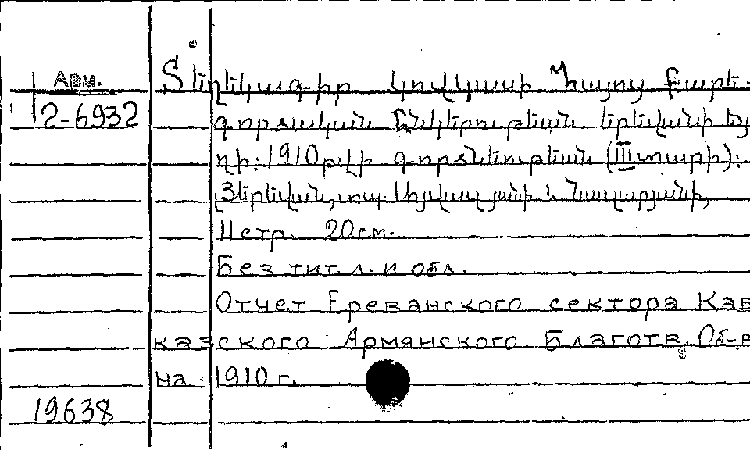 Арм.
2-6932
Տեղեկագիր Կովկասի Հայոց բարե-
գործական Ընկերութեան Երեվանի
1910 թվի գործնէութեան (III տարի):
Յերեվան, տպ.
11 стр. 20см.
Без тит. л. и обл.
Отчет Ереванского сектора Кав
казского Армянского Благотв. Об-в
на 1910 г.
19638